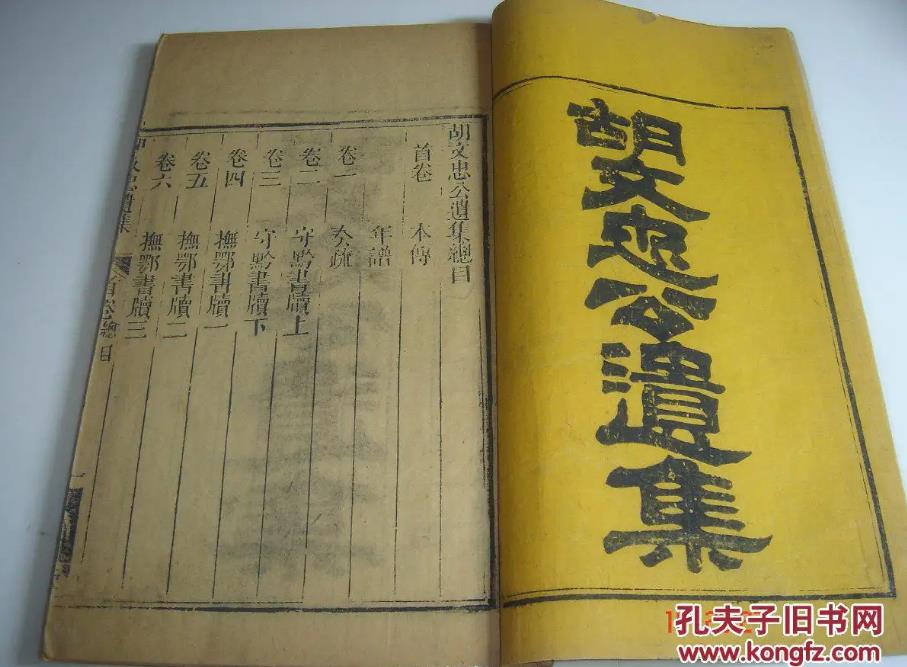 胡文忠公遺集
胡文忠公遺集總目
首卷 本傳
年譜
卷一 奏疏
卷二 守黔書牘上
卷三 守黔書牘下
卷四 撫鄂書牘一
卷五 撫鄂書牘二
卷六 撫鄂書牘三
遺集 首卷 總目 一
孔夫子旧书网
www.kongfz.com